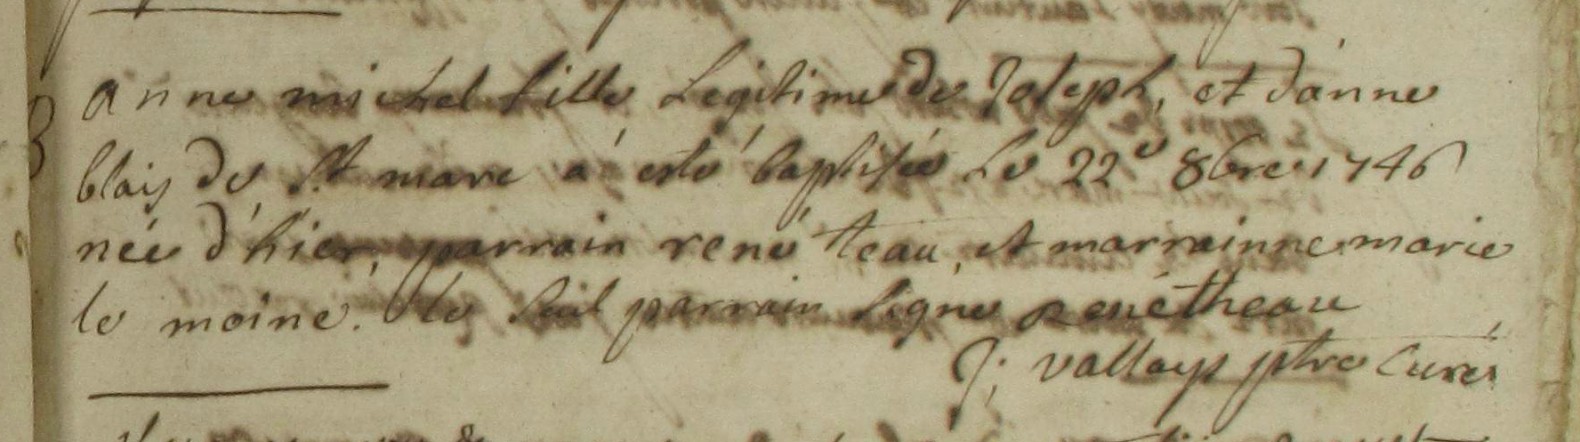 B
anne michel fille Legitime de Joseph, et d'anne
blais de St marc a été baptisée Le 22e 8bre 1746
née d'hier, parrain rené teau, et marrainne marie
le moine. le seul parrain signe renétheau
J: vallays ptre Curé